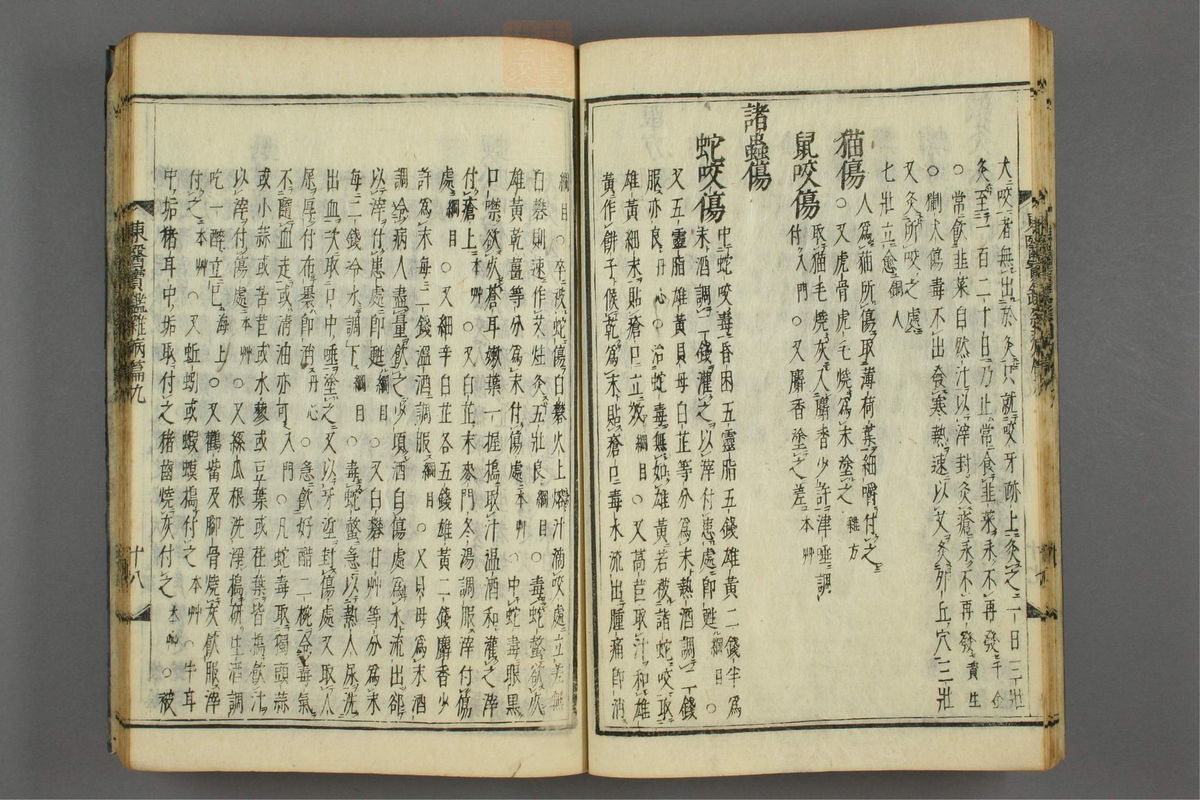 犬咬者無出於灸只就咬牙跡上灸之一日三壯
灸至一百二十日乃止常食韭菜永不再發千金
○常飲韭菜自然汁以滓封灸瘡永不再發資生
○猘犬傷毒不出發寒熱速以艾灸外丘穴三壯
又灸所咬之處
七壯立愈銅人
猫傷
人爲猫所傷取薄荷葉細嚼付之
○又虎骨虎毛燒爲末塗之雜方
鼠咬傷
取猫毛燒灰入麝香少許津唾調
付入門○又麝香塗之差本艸
諸蟲傷
蛇咬傷
中蛇咬毒昏困五靈脂五錢雄黃二錢半爲
末酒調二錢灌之以滓付患處卽甦綱目○
又五靈脂雄黃貝母白芷等分爲末熱酒調二錢
服亦良丹心○治蛇毒無如雄黃若被諸蛇咬取
雄黃細末貼瘡口立效綱目○又萵苣取汁和雄
黃作餠子候乾爲末貼瘡口毒水流出腫痛卽消
綱目○卒被蛇傷白礬火上熔汁滴咬處立差無
白礬則速作艾炷灸五壯良綱目○毒蛇螫欲死
雄黃乾薑等分爲末付傷處本艸○中蛇毒眼黑
口噤欲死蒼耳嫩葉一握搗取汁溫酒和灌之滓
付瘡上本艸○又白芷末麥門冬湯調服滓付傷
處綱目○又細辛白芷各五錢雄黃二錢麝香少
許爲末每二錢溫酒調服綱目○又貝母爲末酒
調令病人盡量飮之少頃酒自傷處爲水流出却
以滓付患處卽甦綱目○又白礬甘艸等分爲末
每二錢冷水調下綱目○毒蛇螫急以熱人尿洗
出血次取口中唾塗之又以牙垽封傷處又取人
屎厚付布裹卽消丹心○急飮好醋二椀令毒氣
不隨血走或淸油亦可入門○凡蛇毒取獨頭蒜
或小蒜或苦苣或水蓼或豆葉或荏葉皆搗飮汁
以滓付傷處本艸○又絲瓜根洗淨搗硏生酒調
吃一醉立已海上○又鸛觜及脚骨燒灰飮服滓
付之本艸○又蚯蚓或蝦蟆搗付之本艸○牛耳
中垢猪耳中垢取付之猪齒燒灰付之本艸○被
東醫寶鑑雜病篇九
十八